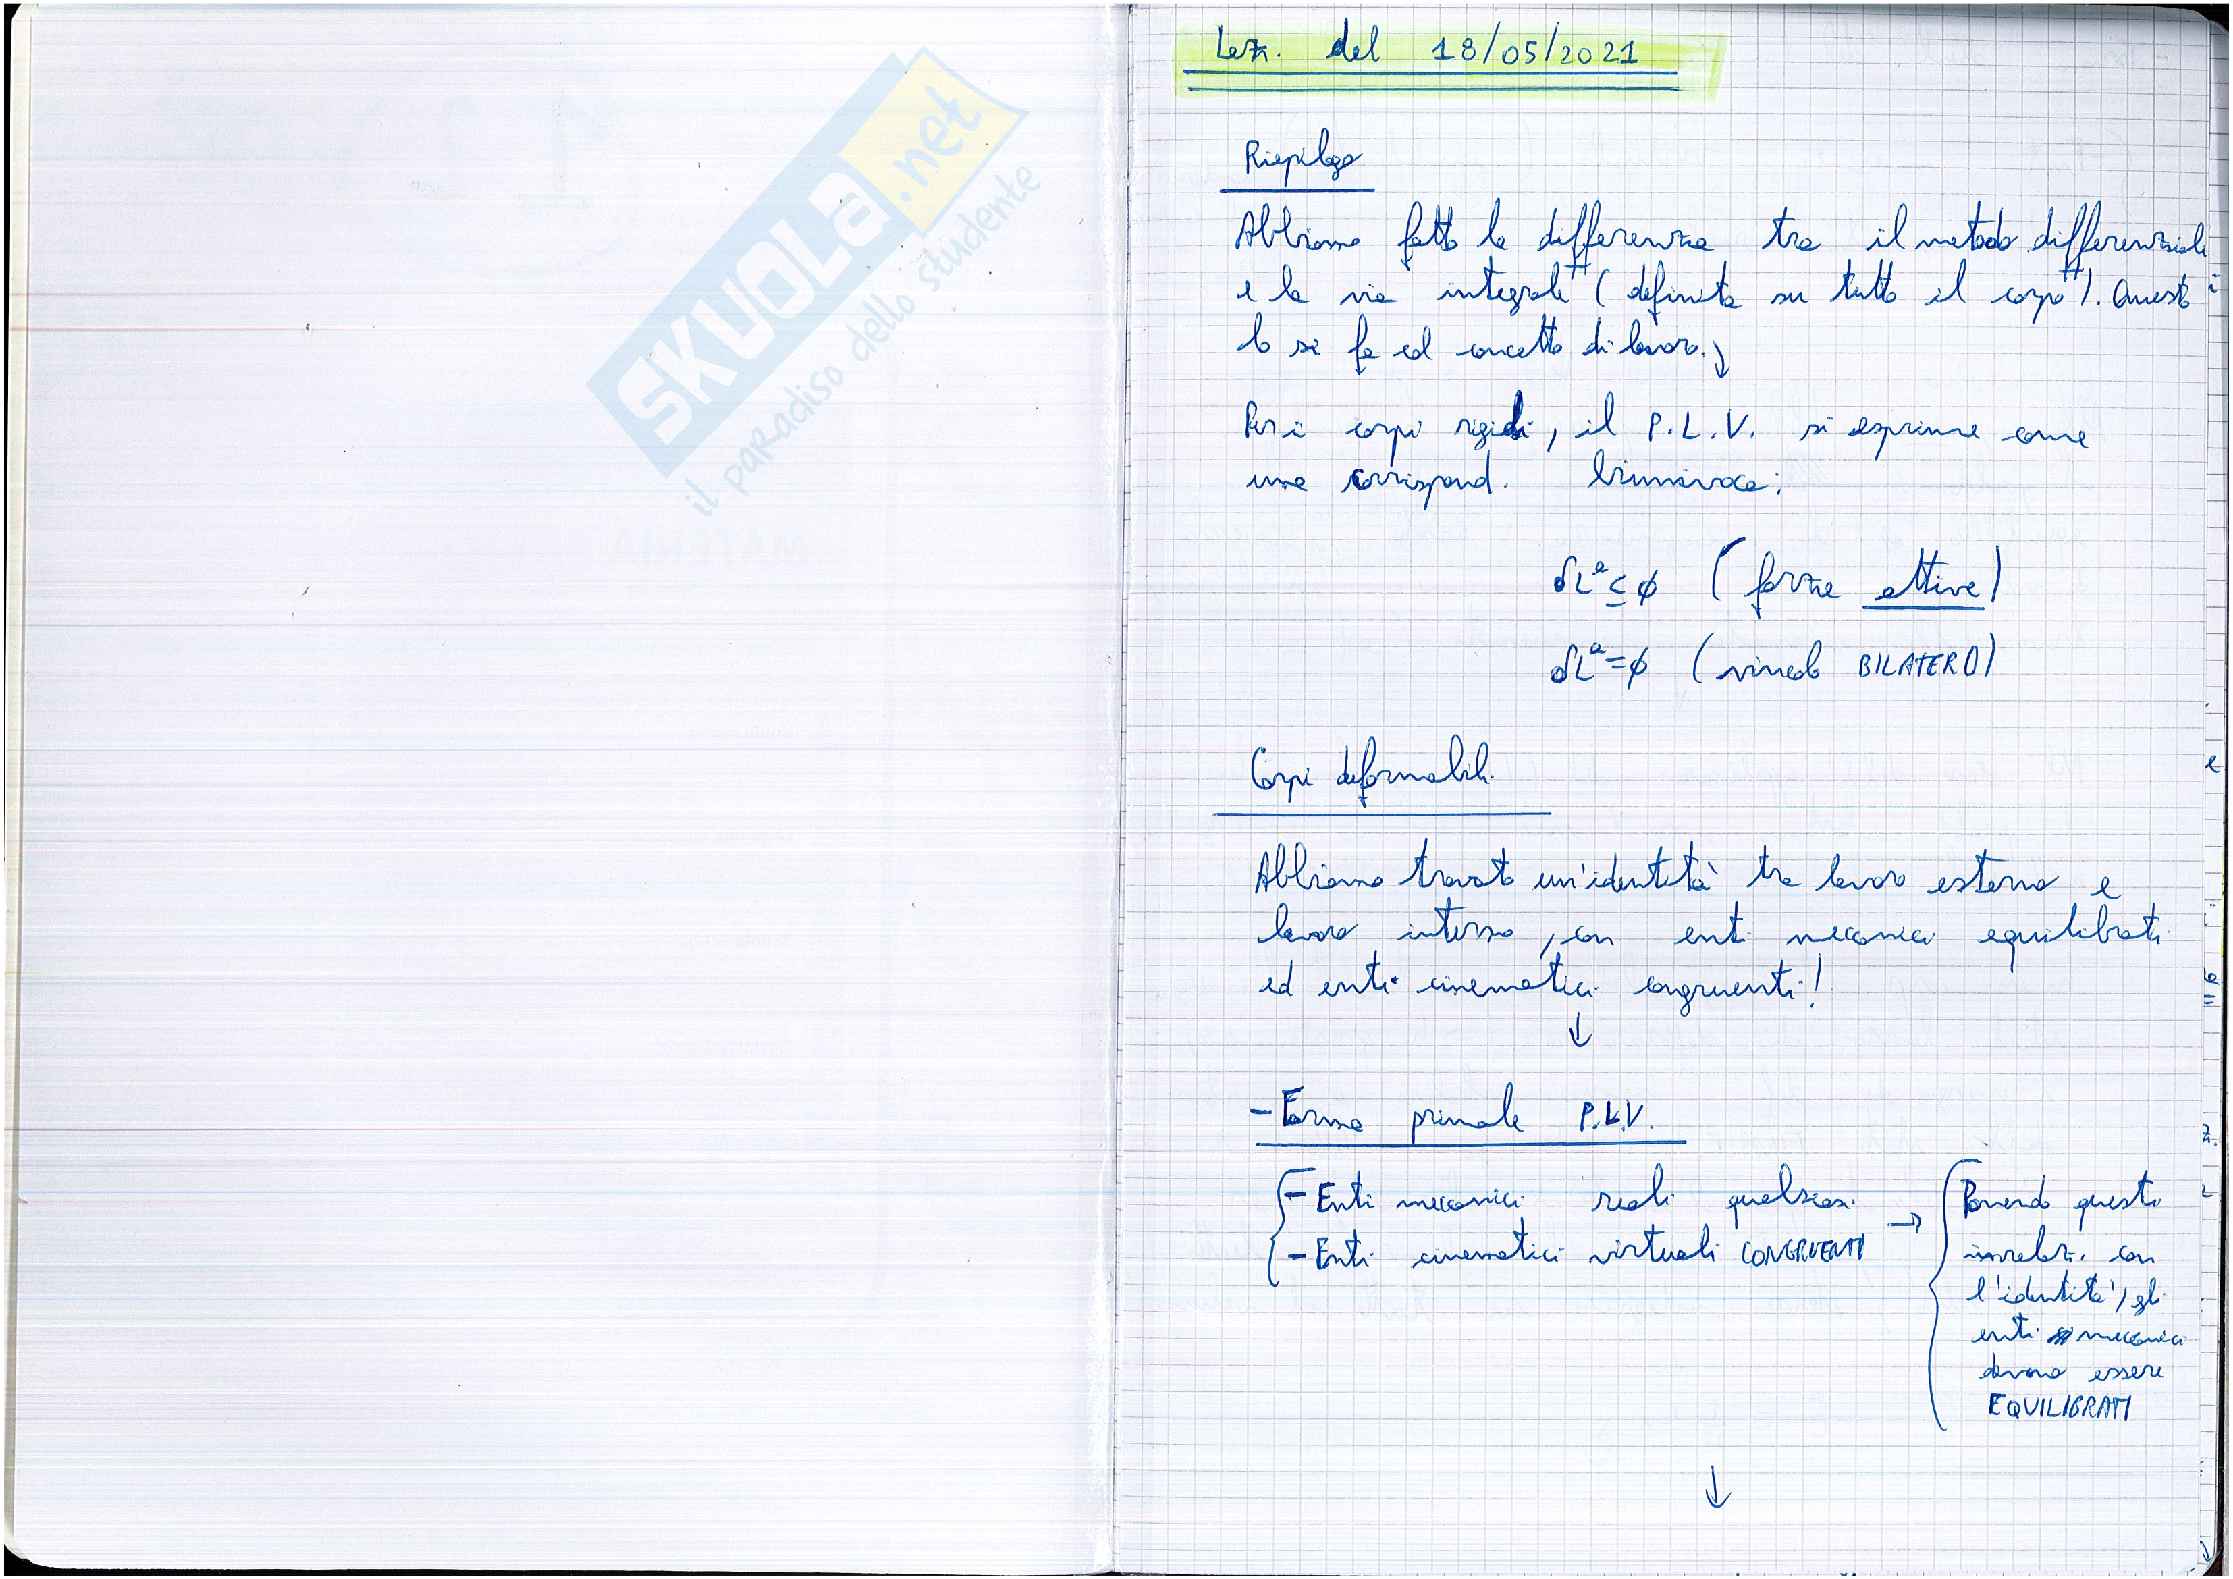 SKUOLA.net
il paradiso dello studente
Lez. del 18/05/2021
Riepilogo
Abbiamo fatto la differenza tra il metodo differenziale
e la via integrale" (definita su tutto il corpo"). Questo
lo si fa col concetto di lavoro.↓
Per i corpi rigidi, il P.L.V. si esprime come
una corrispond. biunivoca:
δLᵃ ≤ φ (forze attive)
δLᵃ = φ (vincolo BILATERO)
Corpi deformabili.
Abbiamo trovato un'identità tra lavoro esterno e
lavoro interno, con enti meccanici equilibrati
ed enti cinematici congruenti!
↓
- Forma primale P.L.V.
- Enti meccanici reali qualsiasi
- Enti cinematici virtuali CONGRUENTI →
Ponendo questi
in relaz. con
l'identità, gli
enti meccanici
devono essere
EQUILIBRATI
↓